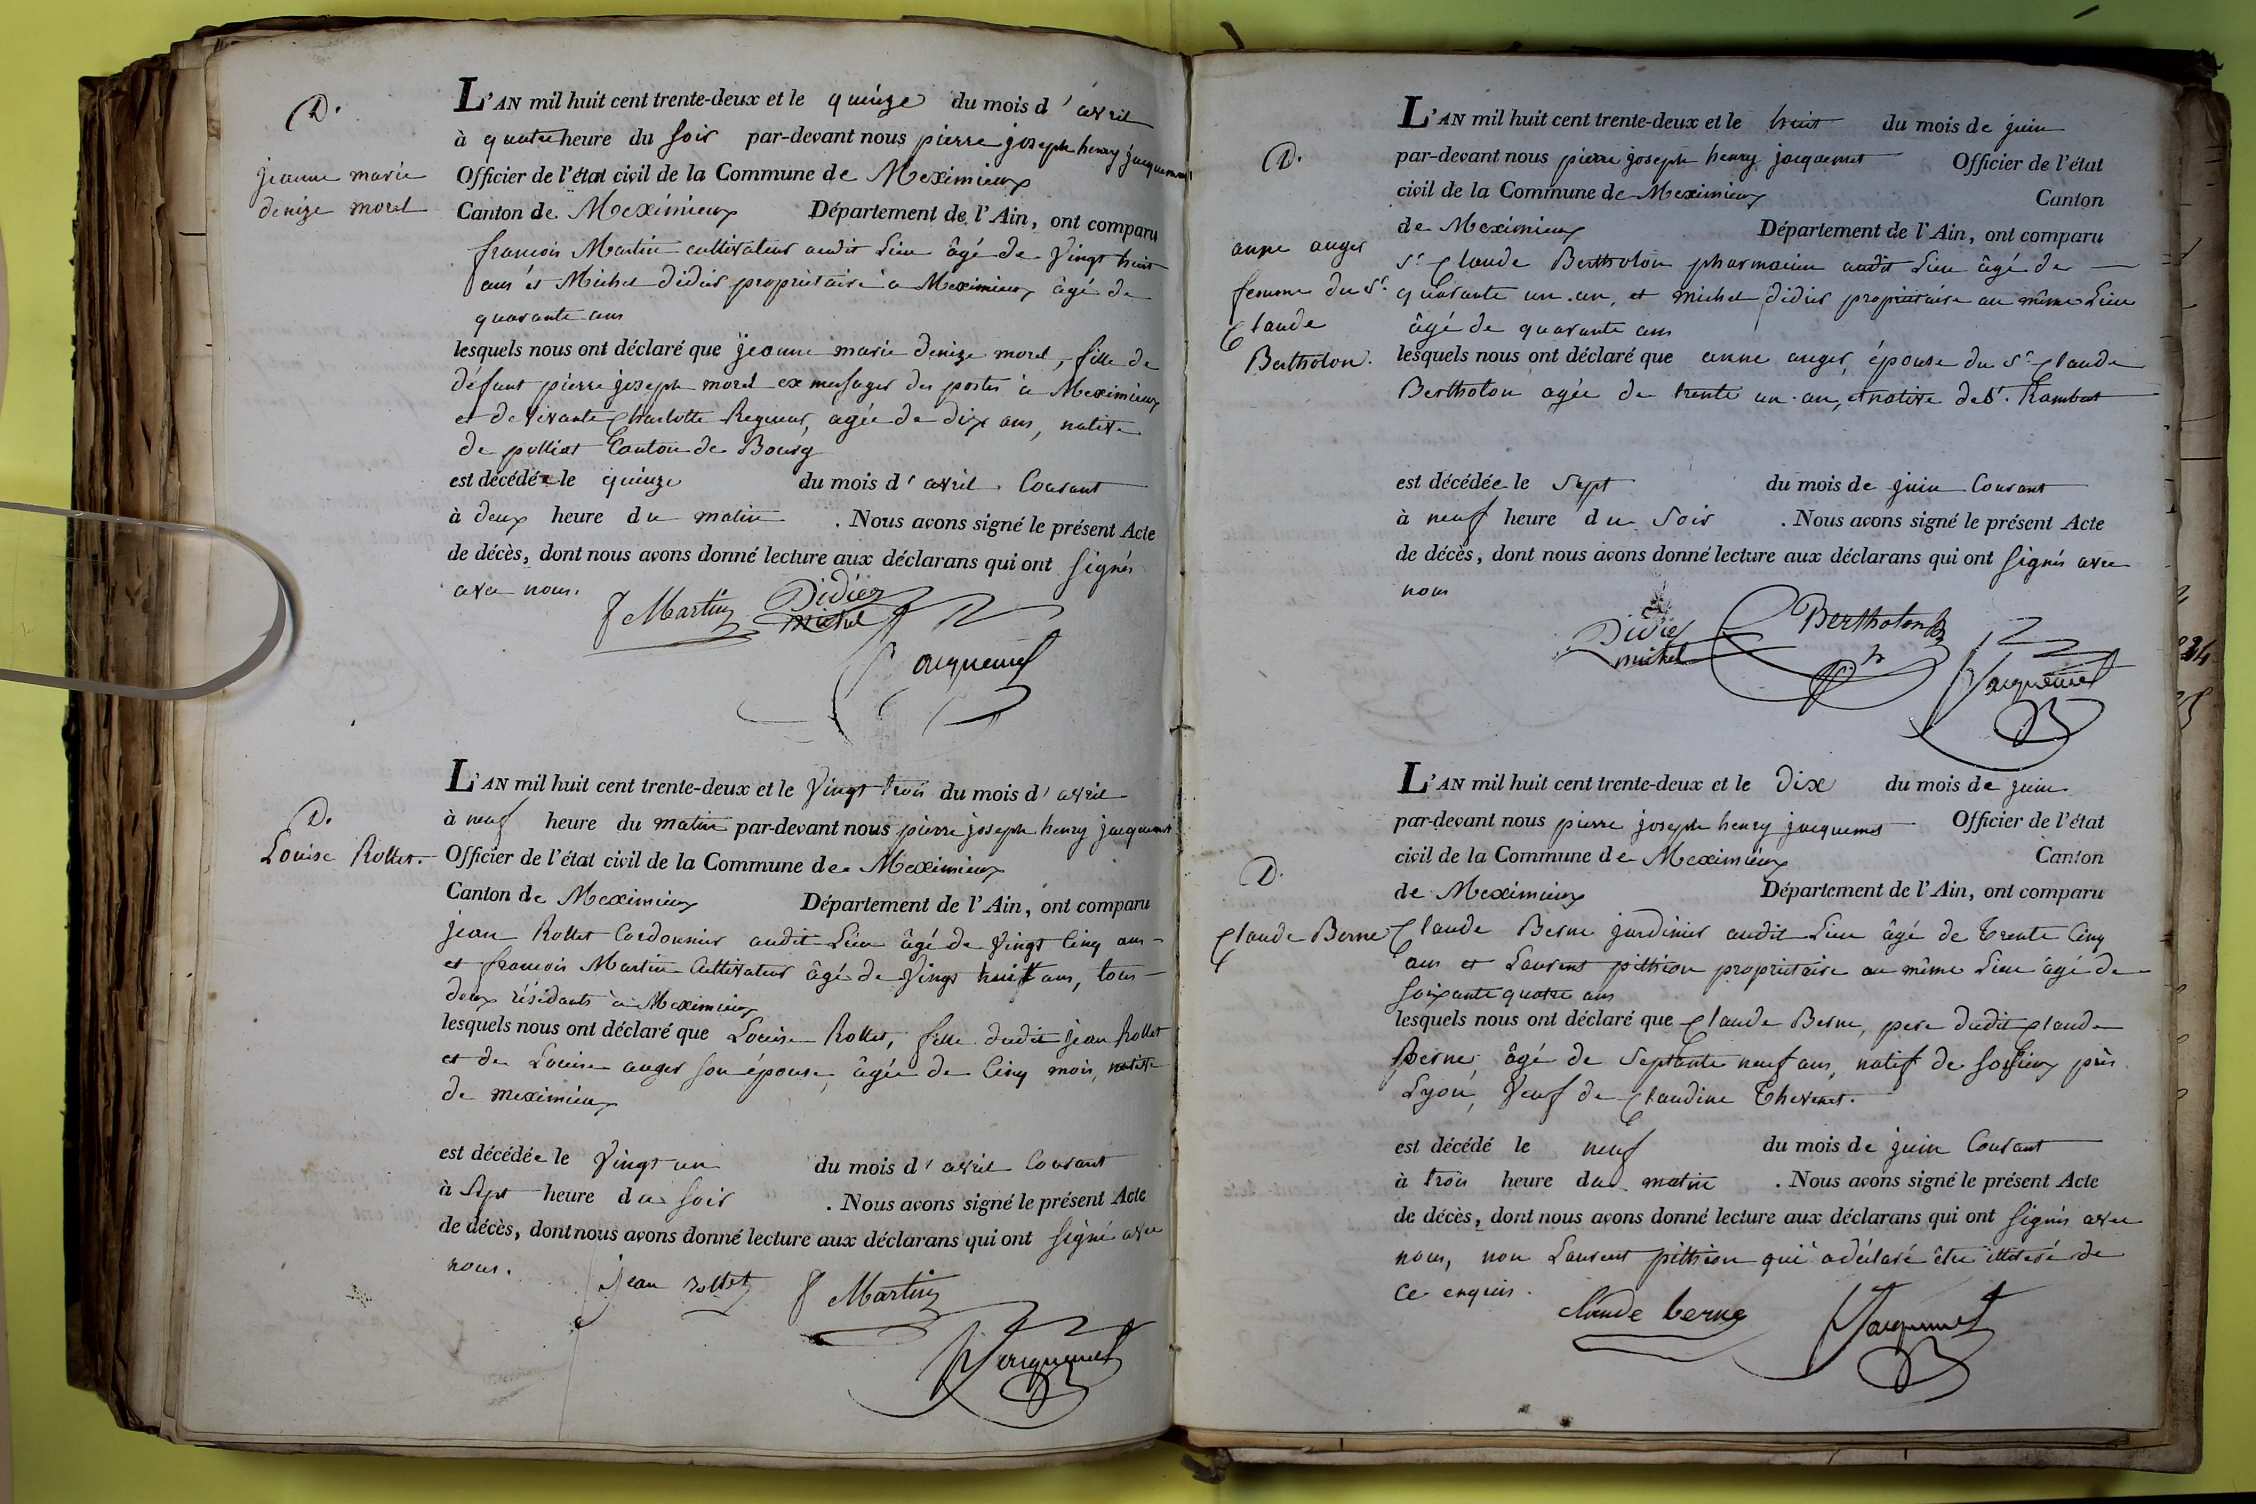 D.
jeanne marie
denize morel
L'AN mil huit cent trente-deux et le quinze du mois d'avril
à quatre heure du soir par-devant nous pierre joseph henry jacquemet
Officier de l'état civil de la Commune de Meximieux
Canton de Meximieux Département de l'Ain, ont comparu
francois Martin cultivateur audit Lieu âgé de Vingt huit
ans et Michel didier propriétaire à Meximieux âgé de
quarante ans
lesquels nous ont déclaré que jeanne marie denize morel, fille de
défunt pierre joseph morel ex messager des postes à Meximieux
et de vivante Charlotte agée de dix ans, native
de polliat Canton de Bourg
est décédée le quinze du mois d'avril Courant
à deux heure du matin . Nous avons signé le présent Acte
de décès, dont nous avons donné lecture aux déclarans qui ont signés
avec nous.
f Martin Didier
michel
Jacquemet
D.
Louise Rollet.
L'AN mil huit cent trente-deux et le Vingt trois du mois d'avril
à neuf heure du matin par-devant nous pierre joseph henry jacquemet
Officier de l'état civil de la Commune de Meximieux
Canton de Meximieux Département de l'Ain, ont comparu
jean Rollet Cordonnier audit Lieu âgé de Vingt Cinq ans
et francois Martin Cultivateur âgé de Vingt huit ans, tous
deux résidants à Meximieux
lesquels nous ont déclaré que Louise Rollet, fille dudit jean Rollet
et de Louise auger son épouse, âgée de Cinq mois, native
de meximieux
est décédée le Vingt un du mois d'avril Courant
à Sept heure du soir . Nous avons signé le présent Acte
de décès, dont nous avons donné lecture aux déclarans qui ont signé avec
nous.
jean rollet f Martin
Jacquemet
D.
anne auger
femme du Sr.
Claude
Bertholon.
L'AN mil huit cent trente-deux et le huit du mois de juin
par-devant nous pierre joseph henry jacquemet Officier de l'état
civil de la Commune de Meximieux Canton
de Meximieux Département de l'Ain, ont comparu
Sr Claude Bertholon pharmacien audit Lieu âgé de
quarante un an, et michel didier propriétaire au même Lieu
âgé de quarante ans
lesquels nous ont déclaré que anne auger, épouse du Sr Claude
Bertholon agée de trente un an, et native de St. Rambert
est décédée le Sept du mois de juin Courant
à neuf heure du Soir . Nous avons signé le présent Acte
de décès, dont nous avons donné lecture aux déclarans qui ont signés avec
nous
Didier
michel
Bertholon
Jacquemet
D.
Claude Berne
L'AN mil huit cent trente-deux et le Dix du mois de juin
par-devant nous pierre joseph henry jacquemet Officier de l'état
civil de la Commune de Meximieux Canton
de Meximieux Département de l'Ain, ont comparu
Claude Berne jardinier audit Lieu âgé de Trente Cinq
ans et Laurent pithion propriétaire au même Lieu âgé de
soixante quatre ans
lesquels nous ont déclaré que Claude Berne, pere dudit Claude
Berne, âgé de Septante neuf ans, natif de près
Lyon, Veuf de Claudine Thevenet.
est décédé le neuf du mois de juin Courant
à trois heure du matin . Nous avons signé le présent Acte
de décès, dont nous avons donné lecture aux déclarans qui ont signés avec
nous, non Laurent pithion qui a déclaré être illitéré de
ce enquis.
claude berne
Jacquemet